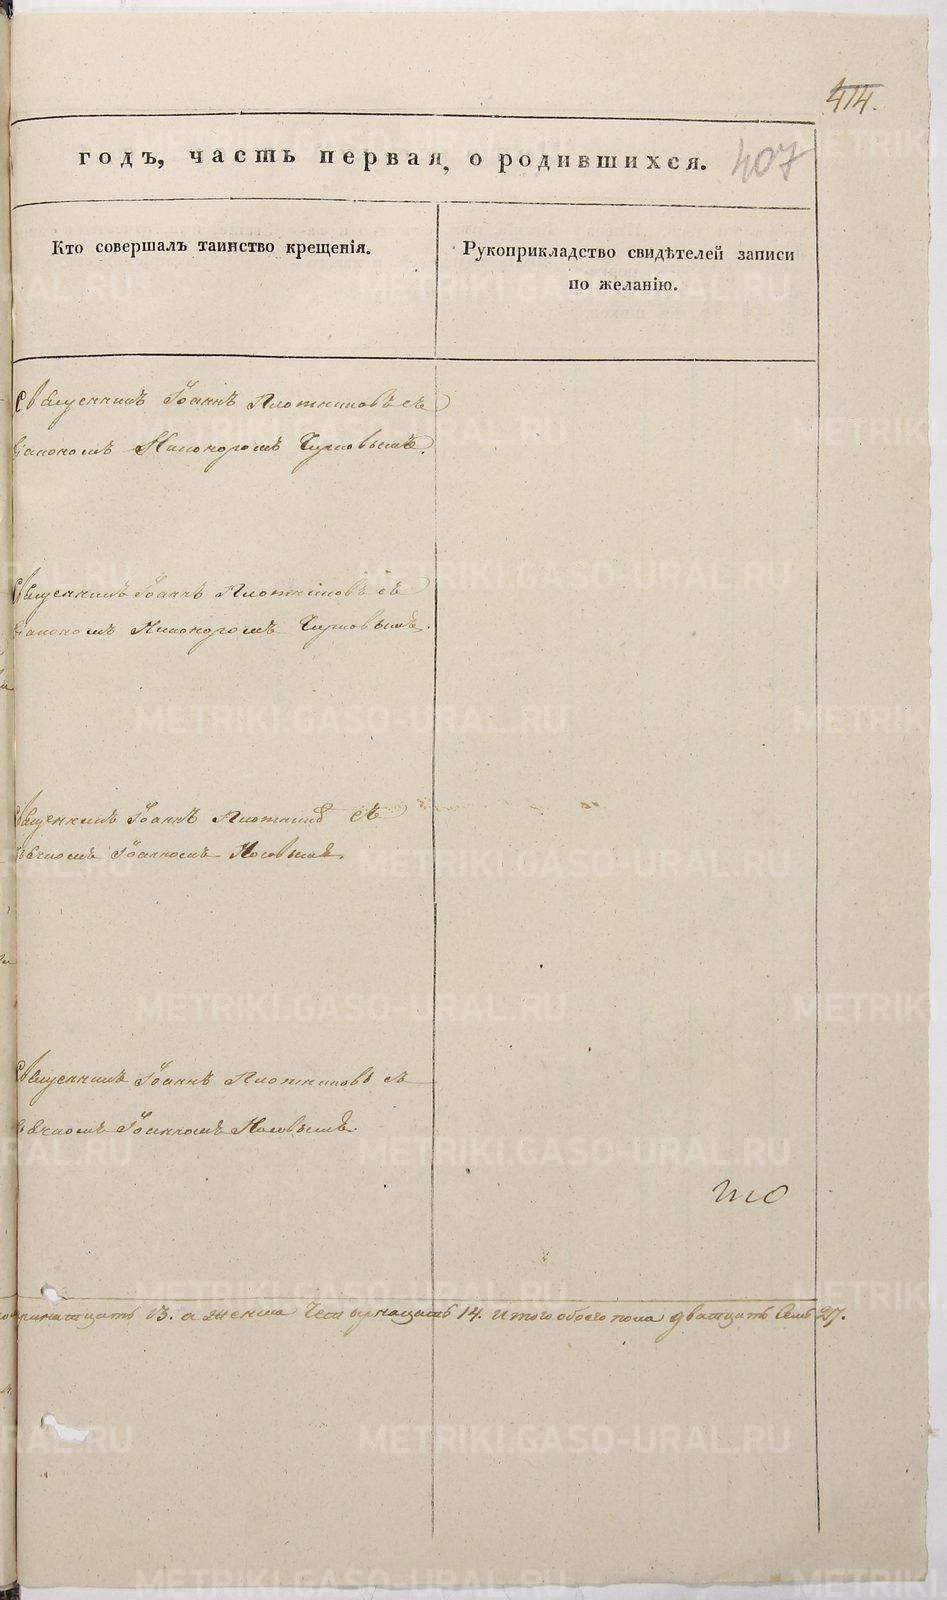 414.
407
годъ, часть первая, о родившихся.
Кто совершалъ таинство крещенія.
Рукоприкладство свидѣтелей записи
по желанію.
Священникъ Іоаннъ Плотниковъ съ
діакономъ Никоноромъ
Священникъ Іоаннъ Плотниковъ съ
діакономъ Никоноромъ
Священникъ Іоаннъ съ
Іоанномъ Носовымъ
Священникъ Іоаннъ Плотниковъ съ
Іоанномъ Носовымъ.
13. а женска Четырнацать 14. Итого обоего пола дватцать Семь 27.
METRIKI.GASO-URAL.RU